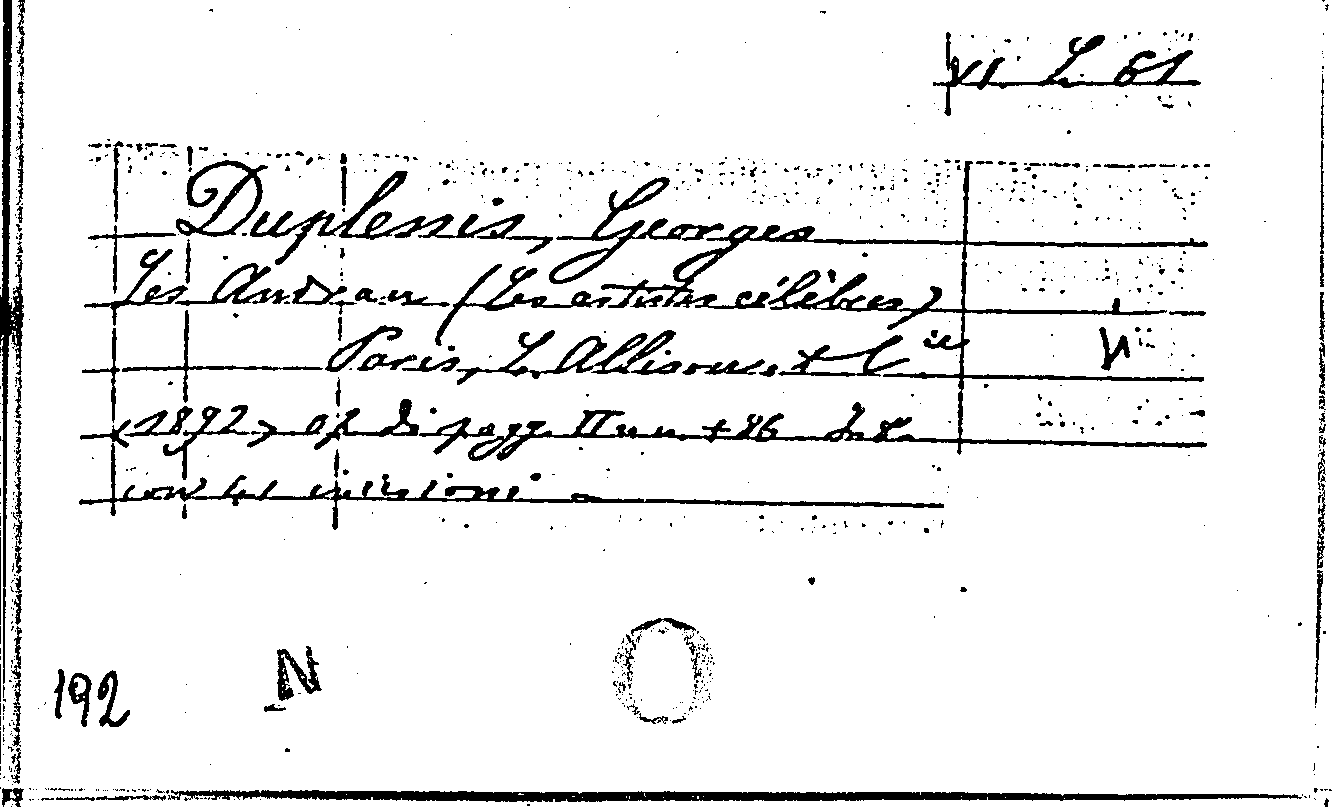 VI. L. 61
Duplessis, Georges
Les Audran (Les artistes célèbres)
Paris, L. Allison, & C.ie
<1892> di pagg. II n.n. + 86 In 8.
con incisioni
192
N